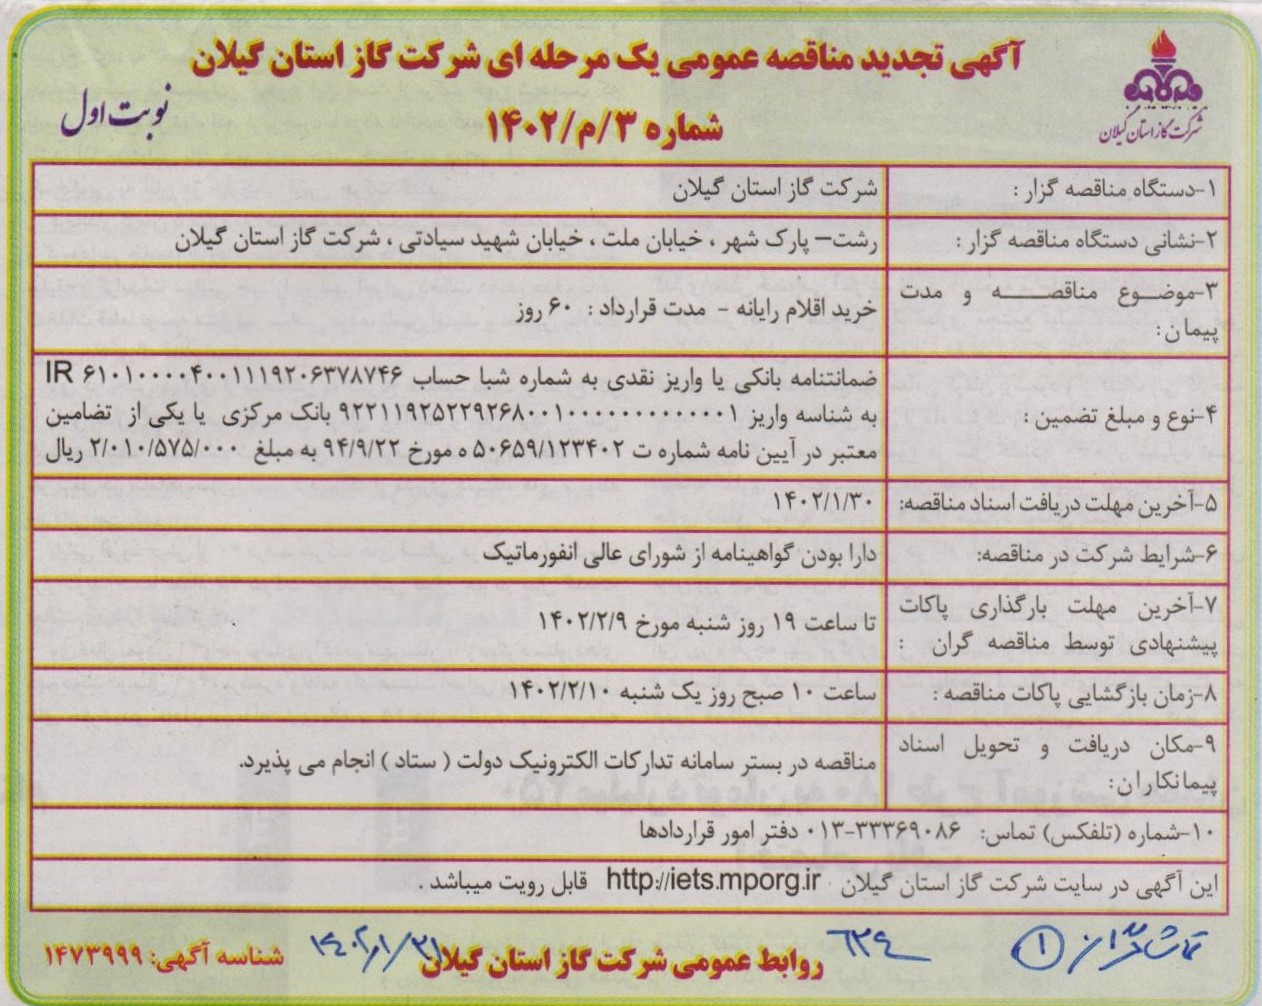 آگهی تجدید مناقصه عمومی یک مرحله ای شرکت گاز استان گیلان
شماره ۳/م/۱۴۰۲
نوبت اول
شرکت گاز استان گیلان
۱-دستگاه مناقصه گزار : شرکت گاز استان گیلان
۲-نشانی دستگاه مناقصه گزار : رشت– پارک شهر ، خیابان ملت ، خیابان شهید سیادتی ، شرکت گاز استان گیلان
۳-موضوع مناقصه و مدت
پیمان:
خرید اقلام رایانه - مدت قرارداد : ۶۰ روز
۴-نوع و مبلغ تضمین :
ضمانتنامه بانکی یا واریز نقدی به شماره شبا حساب IR ۶۱۰۱۰۰۰۰۴۰۰۱۱۱۹۲۰۶۳۷۸۷۴۶
به شناسه واریز ۹۲۲۱۱۹۲۵۲۲۹۲۶۸۰۰۱۰۰۰۰۰۰۰۰۰۰۰۰۱ بانک مرکزی یا یکی از تضامین
معتبر در آیین نامه شماره ت ۵۰۶۵۹/۱۲۳۴۰۲ ه مورخ ۹۴/۹/۲۲ به مبلغ ۲/۰۱۰/۵۷۵/۰۰۰ ریال
۵-آخرین مهلت دریافت اسناد مناقصه: ۱۴۰۲/۱/۳۰
۶-شرایط شرکت در مناقصه: دارا بودن گواهینامه از شورای عالی انفورماتیک
۷-آخرین مهلت بارگذاری پاکات
پیشنهادی توسط مناقصه گران :
تا ساعت ۱۹ روز شنبه مورخ ۱۴۰۲/۲/۹
۸-زمان بازگشایی پاکات مناقصه : ساعت ۱۰ صبح روز یک شنبه ۱۴۰۲/۲/۱۰
۹-مکان دریافت و تحویل اسناد
پیمانکاران:
مناقصه در بستر سامانه تدارکات الکترونیک دولت ( ستاد ) انجام می پذیرد.
۱۰-شماره (تلفکس) تماس: ۰۱۳-۳۳۳۶۹۰۸۶ دفتر امور قراردادها
این آگهی در سایت شرکت گاز استان گیلان http://iets.mporg.ir قابل رویت میباشد .
روابط عمومی شرکت گاز استان گیلان
شناسه آگهی: ۱۴۷۳۹۹۹
۱
۶۲۴
۱۴۰۲/۰۱/۲۱